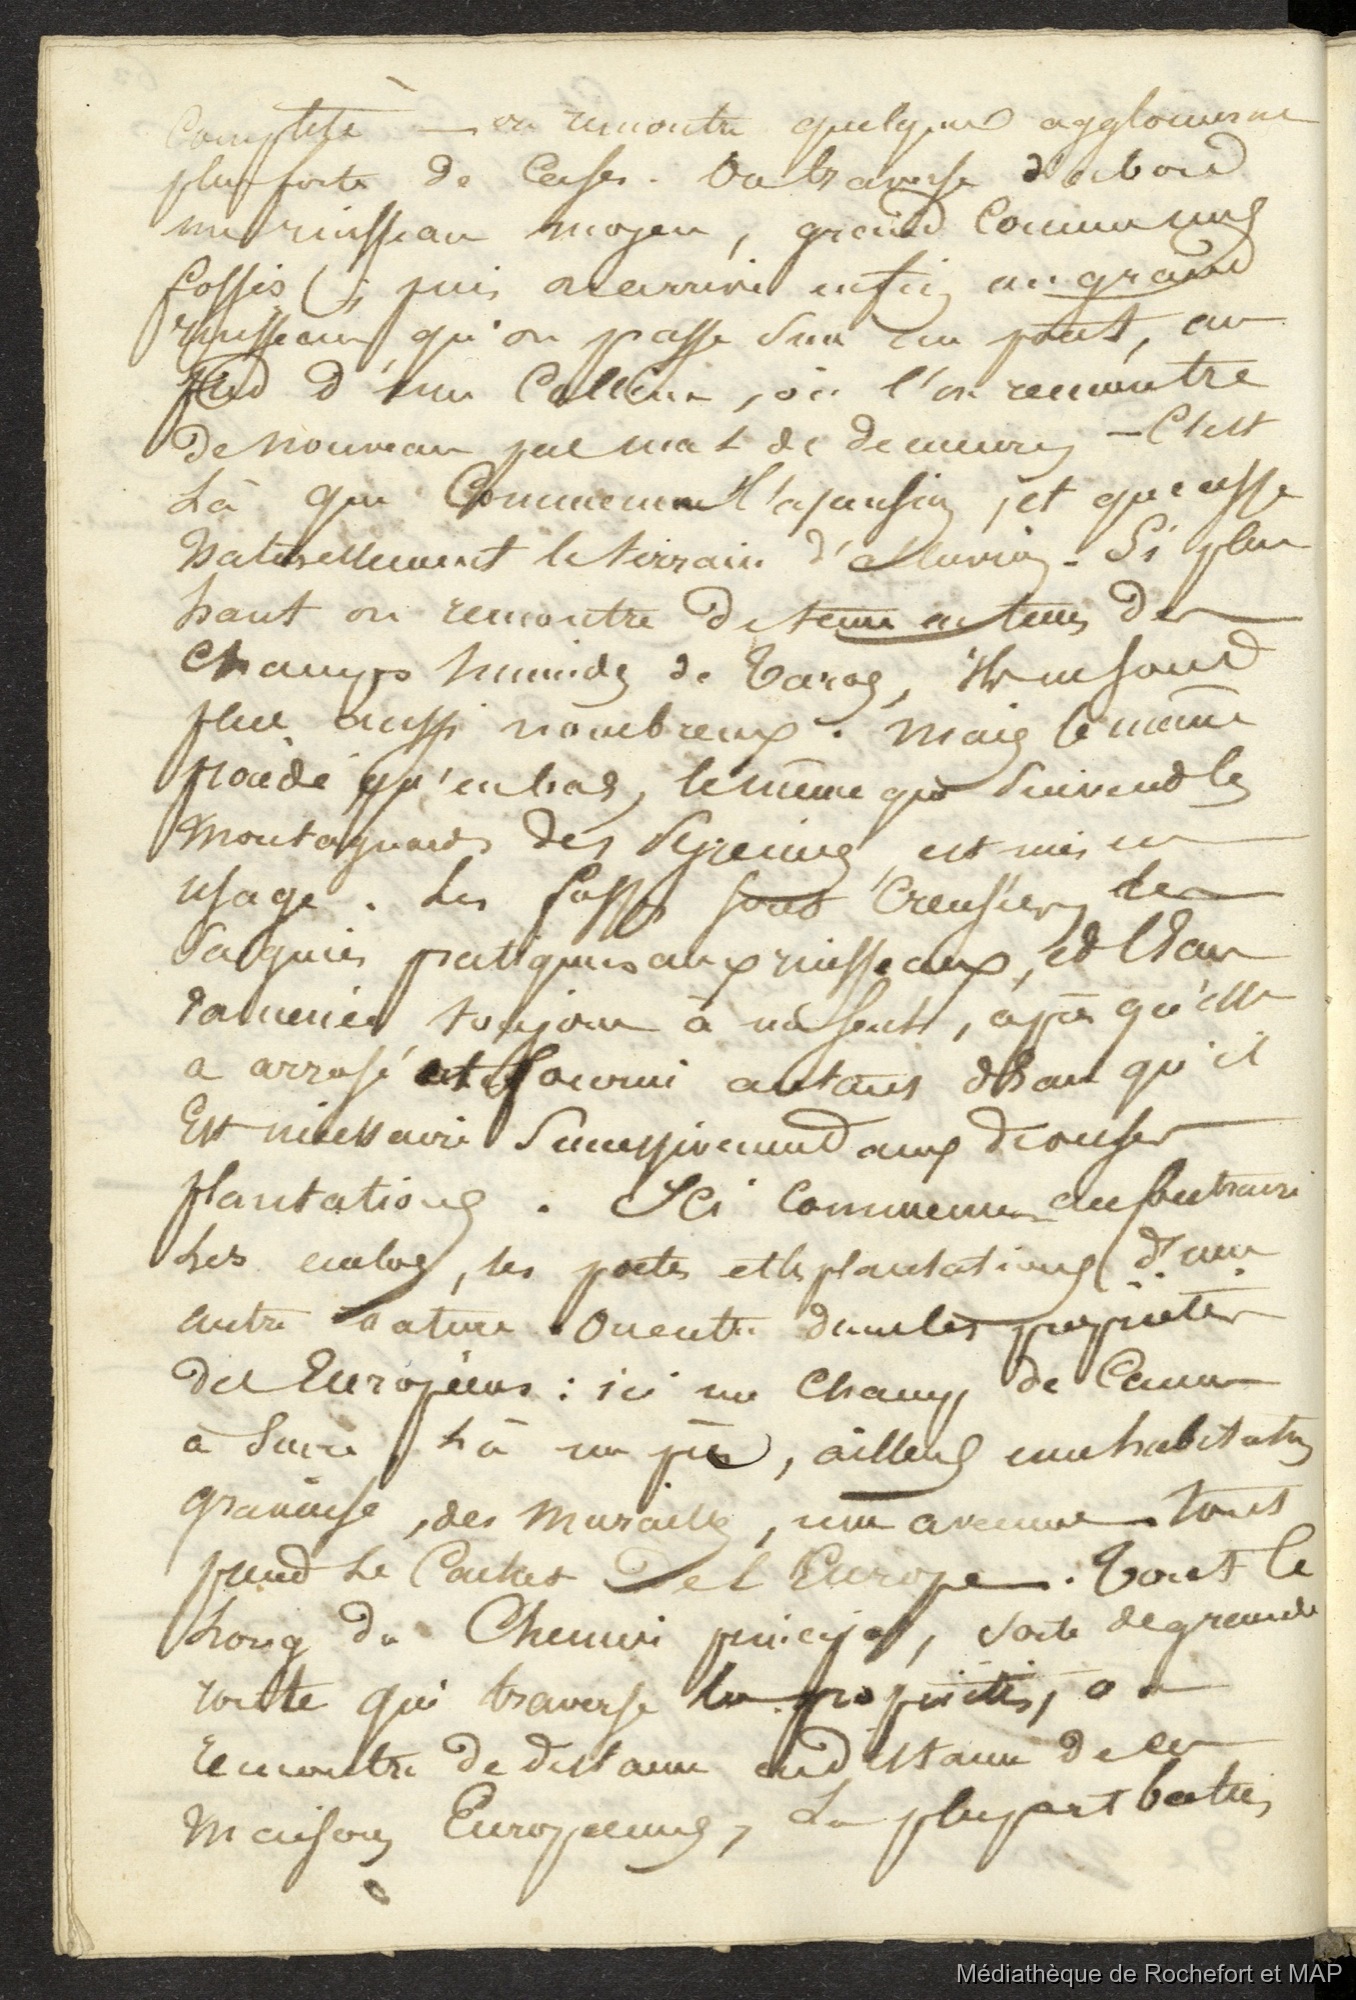 complète — on rencontre quelques agglomérat
plus forte de cases. On traverse d'abord
un ruisseau moyen, grand comme nos
fossés (; puis on arrive enfin au grand
ruisseau qu'on passe sur un pont, au
pied d'une colline, où l'on rencontre
de nouveau pas mal de demeures — C'est
là que commence l'ascension, et que cesse
naturellement le terrain d'alluvion. Si plus
haut on rencontre de temps en temps des
champs humides de Taros, ils ne sont
plus aussi nombreux. Mais le même
procédé qu'en bas, le même que suivent les
montagnards des Pyrénées est mis en
usage. Les fossés sont creusés, des
saignées pratiquées aux ruisseaux, et l'eau
ramenée toujours à, après qu'elle
a arrosé et fourni autant d'eau qu'il
est nécessaire successivement aux diverses
plantations. Ici commencent au contraire
les enclos, les portes et les plantations d'une
autre nature. On entre dans les propriétés
des Européens : ici un champ de canne
à sucre, là un pré, ailleurs une habitation
gracieuse, des murailles, une avenue. Tout
prend le cachet de l'Europe. Tout le
long du chemin principal, sorte de grande
route qui traverse les propriétés, on
rencontre de distance en distance de ces
maisons Européennes, la plupart baties
Médiathèque de Rochefort et MAP